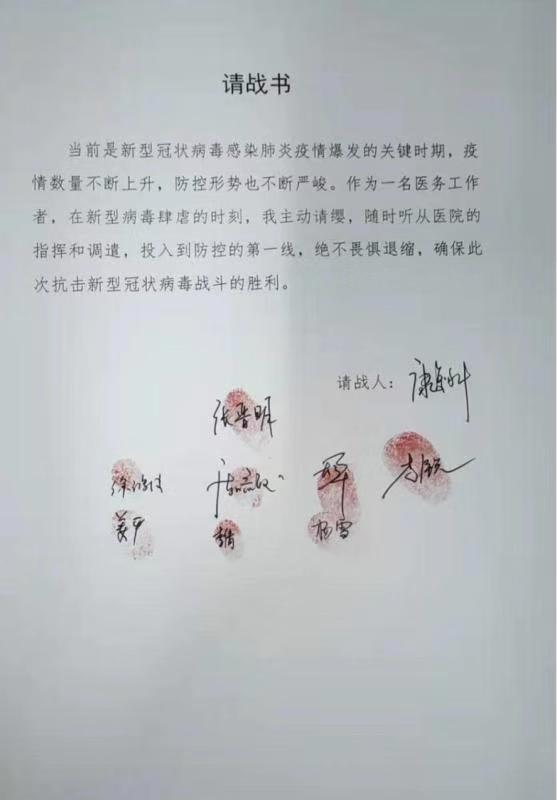 请战书
当前是新型冠状病毒感染肺炎疫情爆发的关键时期，疫
情数量不断上升，防控形势也不断严峻。作为一名医务工作
者，在新型病毒肆虐的时刻，我主动请缨，随时听从医院的
指挥和调遣，投入到防控的第一线，绝不畏惧退缩，确保此
次抗击新型冠状病毒战斗的胜利。
请战人：
张晋明
杨雪